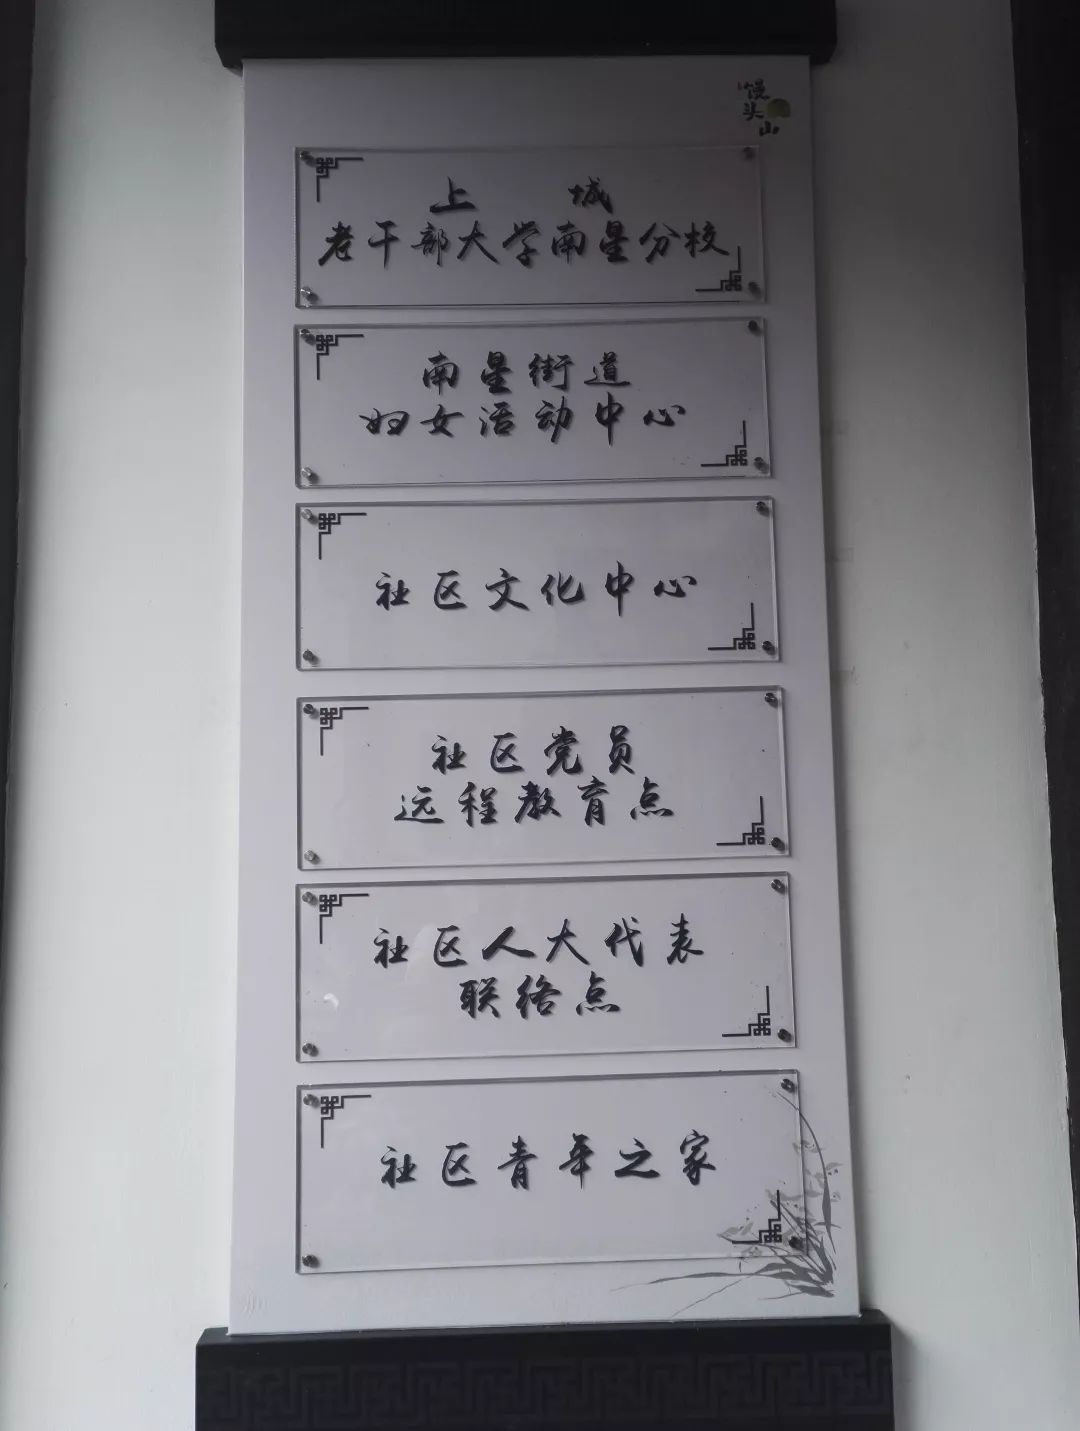 馒头山
上城
老干部大学南星分校
南星街道
妇女活动中心
社区文化中心
社区党员
远程教育点
社区人大代表
联络点
社区青年之家